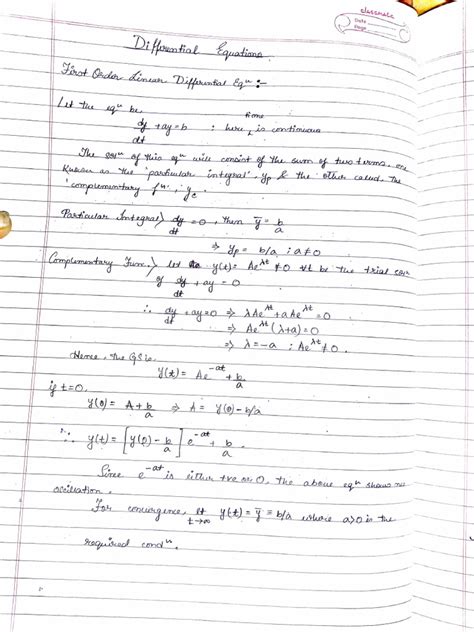 classmate
Date
Page
Differential Equations
First Order Linear Differential Eqⁿ :-
Let the eqⁿ be,
dy/dt + ay = b ; here time is continuous
The solⁿ of this eqⁿ will consist of the sum of two terms, one
known as the 'particular integral', yp & the other called, the
'complementary fⁿ', yc
Particular Integral) dy/dt = 0, then ȳ = b/a
⇒ yp = b/a ; a ≠ 0
Complementary Func.) let y(t) = Ae^λt ≠ 0 ∀t be the trial solⁿ
of dy/dt + ay = 0
∴ dy/dt + ay = 0 ⇒ λAe^λt + aAe^λt = 0
⇒ Ae^λt (λ+a) = 0
⇒ λ = -a ; Ae^λt ≠ 0.
Hence, the GS is.
y(t) = Ae^-at + b/a
if t=0,
y(0) = A + b/a ⇒ A = y(0) - b/a
∴ y(t) = [y(0) - b/a] e^-at + b/a.
Since e^-at is either +ve or 0, the above eqⁿ shows no
oscillation.
For convergence, lt t→∞ y(t) = ȳ = b/a where a>0 is the
required condⁿ.